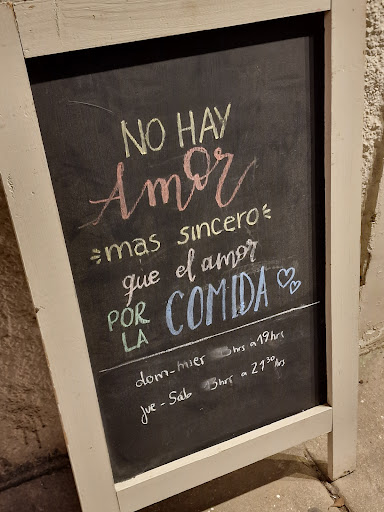 NO HAY
Amor
mas sincero
que el amor
POR LA COMIDA
dom-mier hrs a 19 hrs
jue-Sáb hrs a 21³⁰ hrs